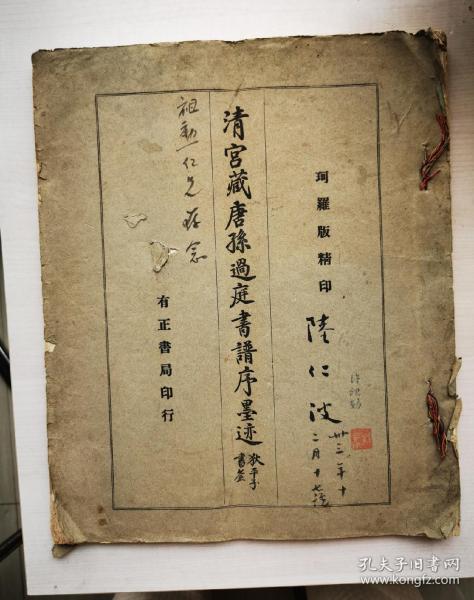 珂羅版精印
陸仁波
卅三年十
二月十七號
清宮藏唐孫過庭書譜序墨迹
狄平子
書崟
祖勳仁兄存念
有正書局印行
孔夫子旧书网
www.kongfz.com